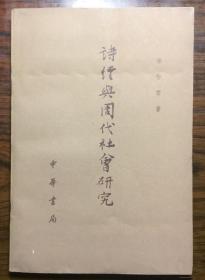 詩經與周代社會研究
中華書局